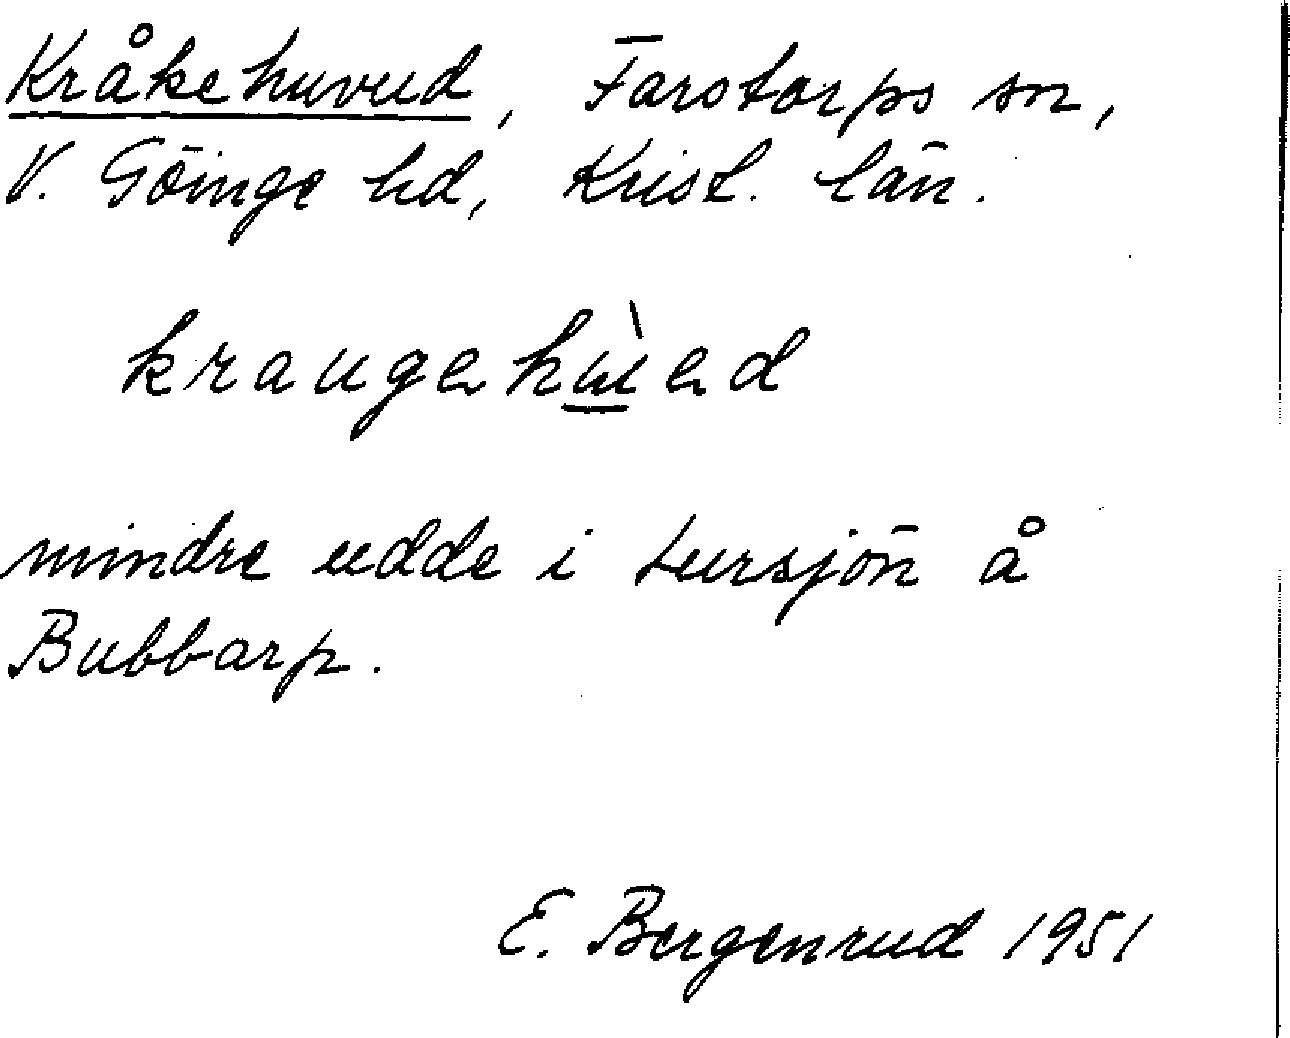 Kråkehuvud, Farstorps sn,
V. Göinge hd, Krist. län.
kraugəhù̲əd
mindre udde i Lursjön å
Bubbarp.
E. Bergenrud 1951